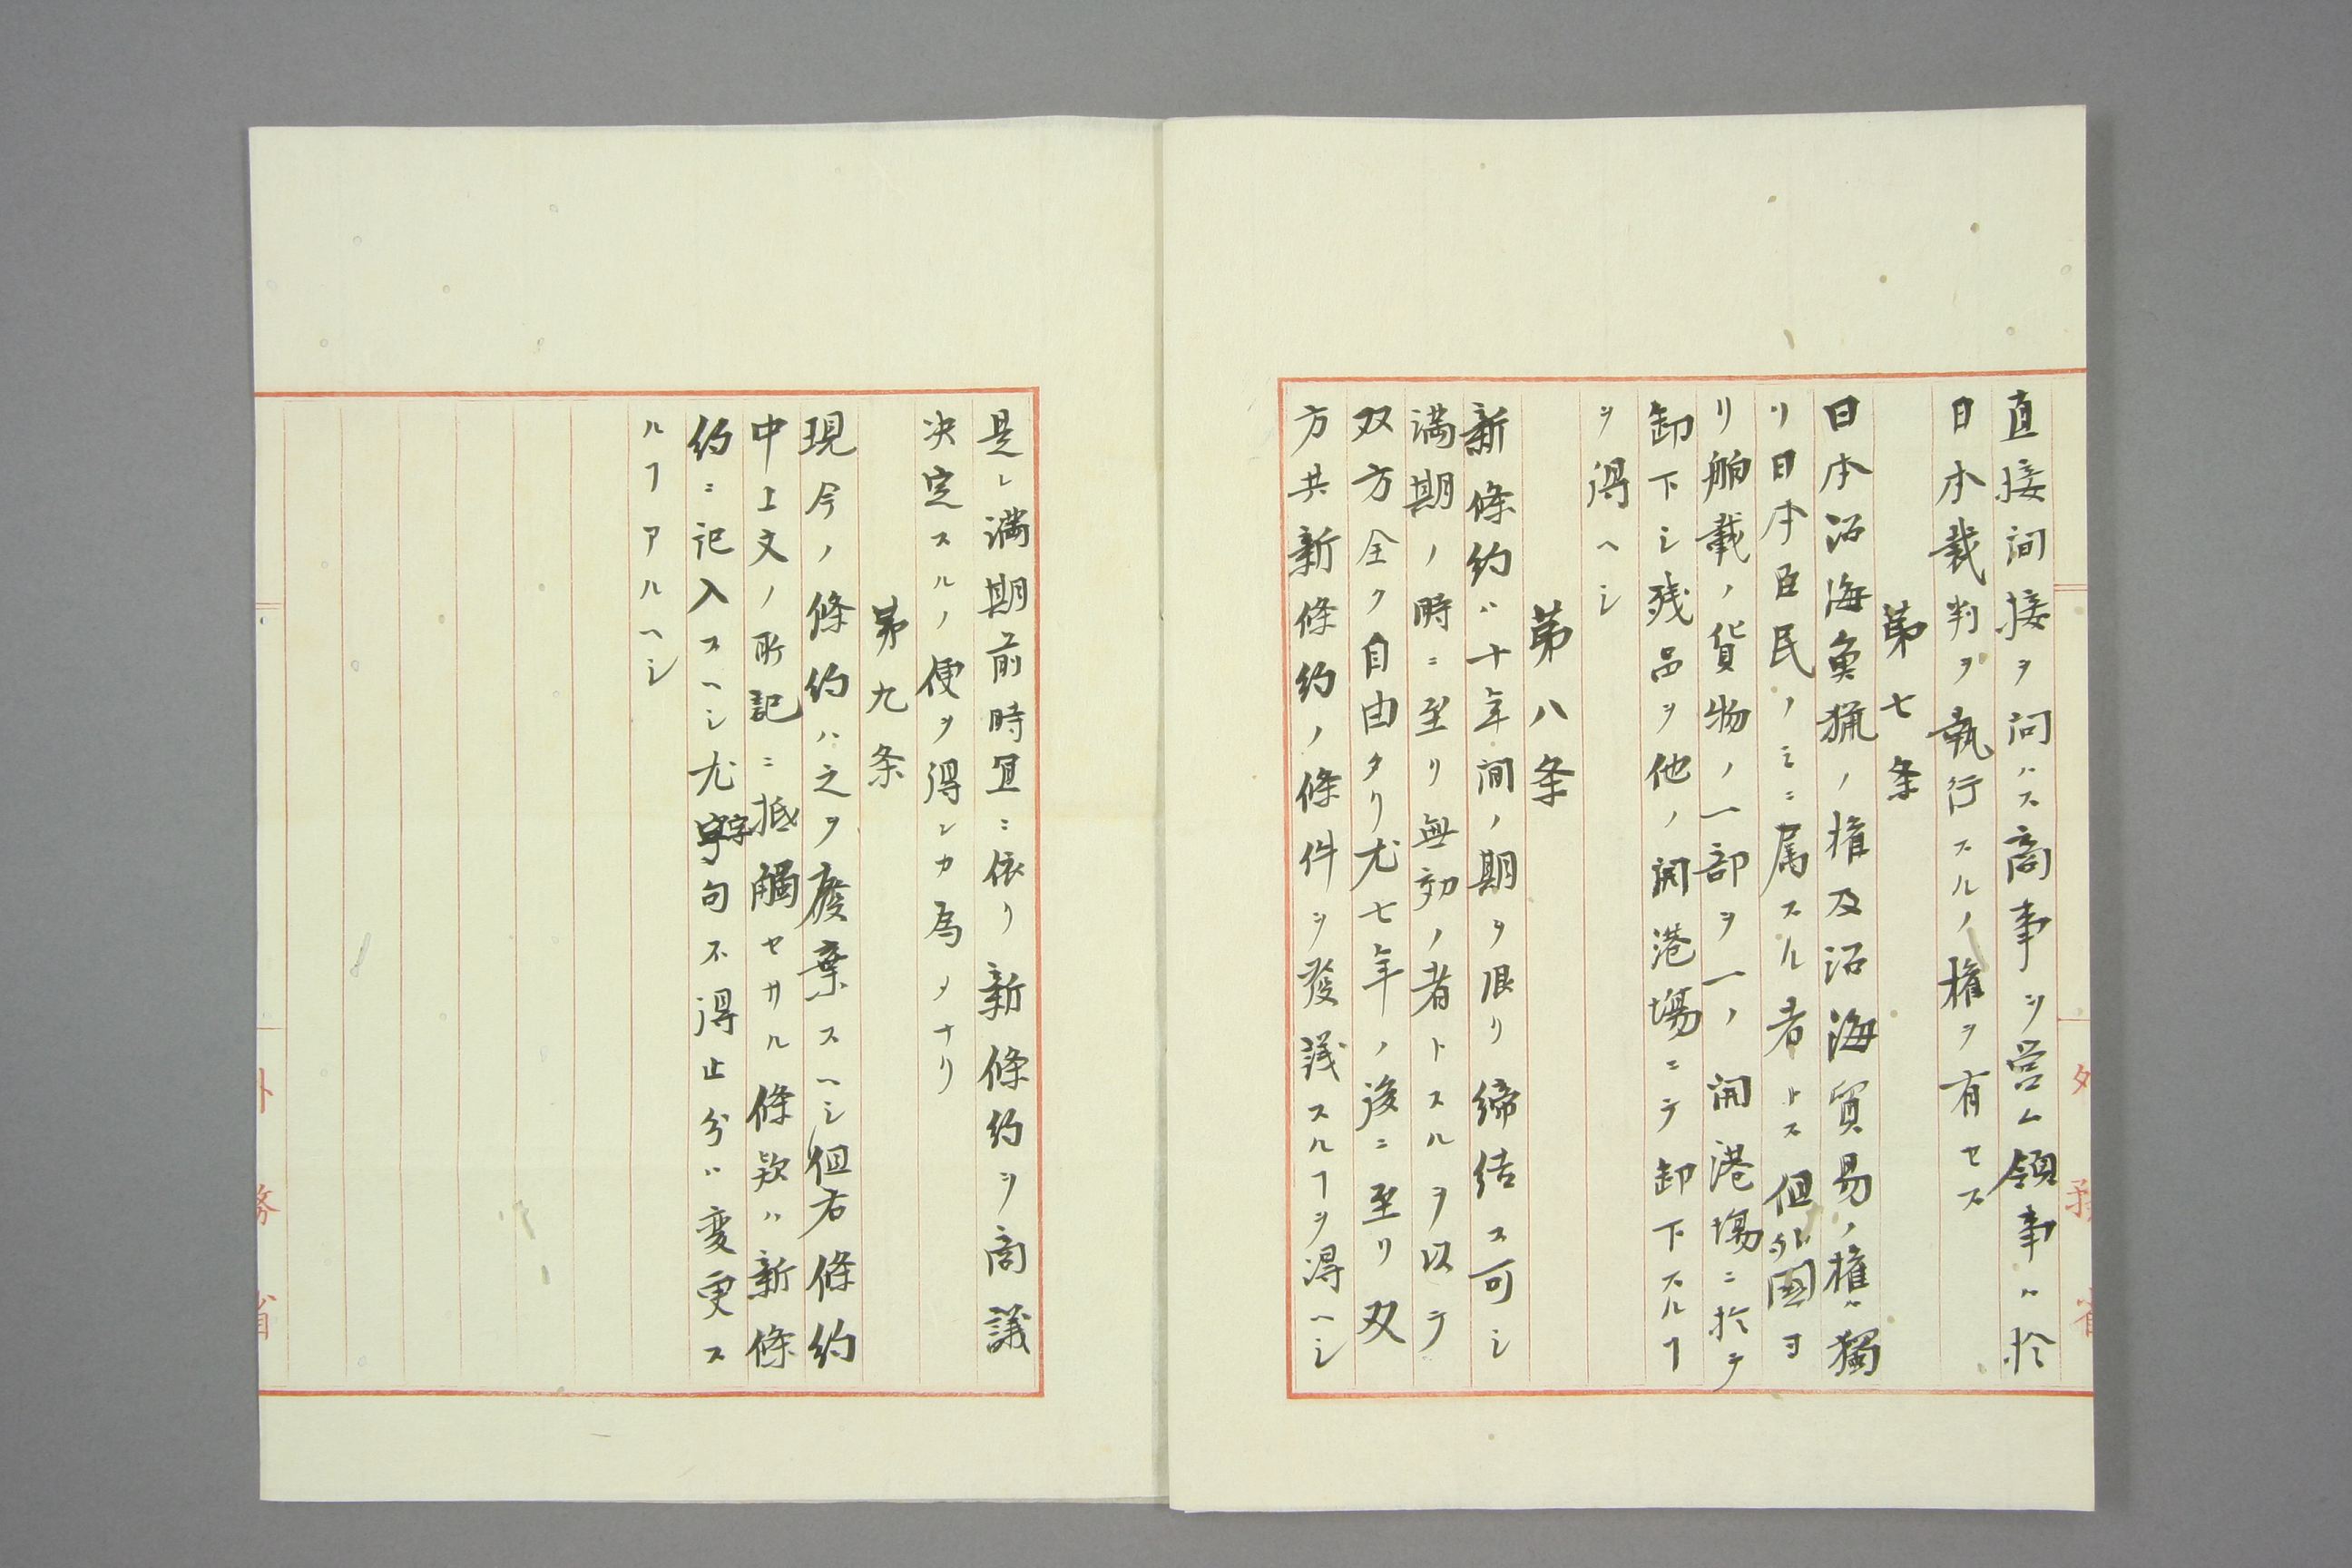 直接間接ヲ問ハス商事ヲ営ム領事ハ於
日本裁判ヲ執行スルノ権ヲ有セス
第七条
日本沿海魚猟ノ権及沿海貿易ノ権ハ獨
リ日本臣民ノミニ属スル者トス但外國ヨ
リ舶載ノ貨物ノ一部ヲ一ノ開港場ニ於テ
卸下シ残品ヲ他ノ開港場ニテ卸下スルヿ
ヲ得ヘシ
第八条
新條約ハ十年間ノ期ヲ限リ締結ス可シ
満期ノ時ニ至リ無効ノ者トスルヲ以テ
双方全ク自由タリ尤七年ノ後ニ至リ双
方共新條約ノ條件ヲ發議スルヿヲ得ヘシ
是レ満期前時宜ニ依リ新條約ヲ商議
决定スルノ便ヲ得ンカ為メナリ
第九条
現今ノ條約ハ之ヲ廢棄スヘシ但右條約
中上文ノ所記ニ抵觸セサル條款ハ新條
約ニ記入スヘシ尤字句不得止分ハ変更ス
ルヿアルヘシ
外務省
外務省